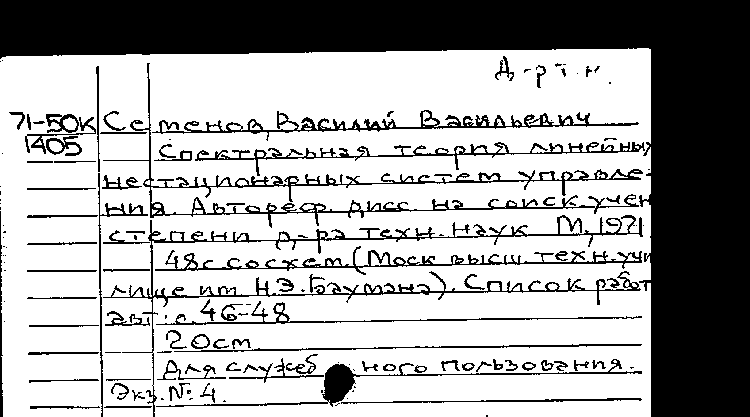 Д-р т.н.
71-50к Семенов, Василий Васильевич
1405 Спектральная теория линейных
нестационарных систем управле-
ния. Автореф. дисс. на соиск. учен
степени д-ра техн. наук М., 1971
48с. со схем. (Моск. высш. техн. учи
лище им. Н.Э.Баумана). Список работ
авт.: с. 46-48
20см.
Для служебного пользования.
Экз. №4.